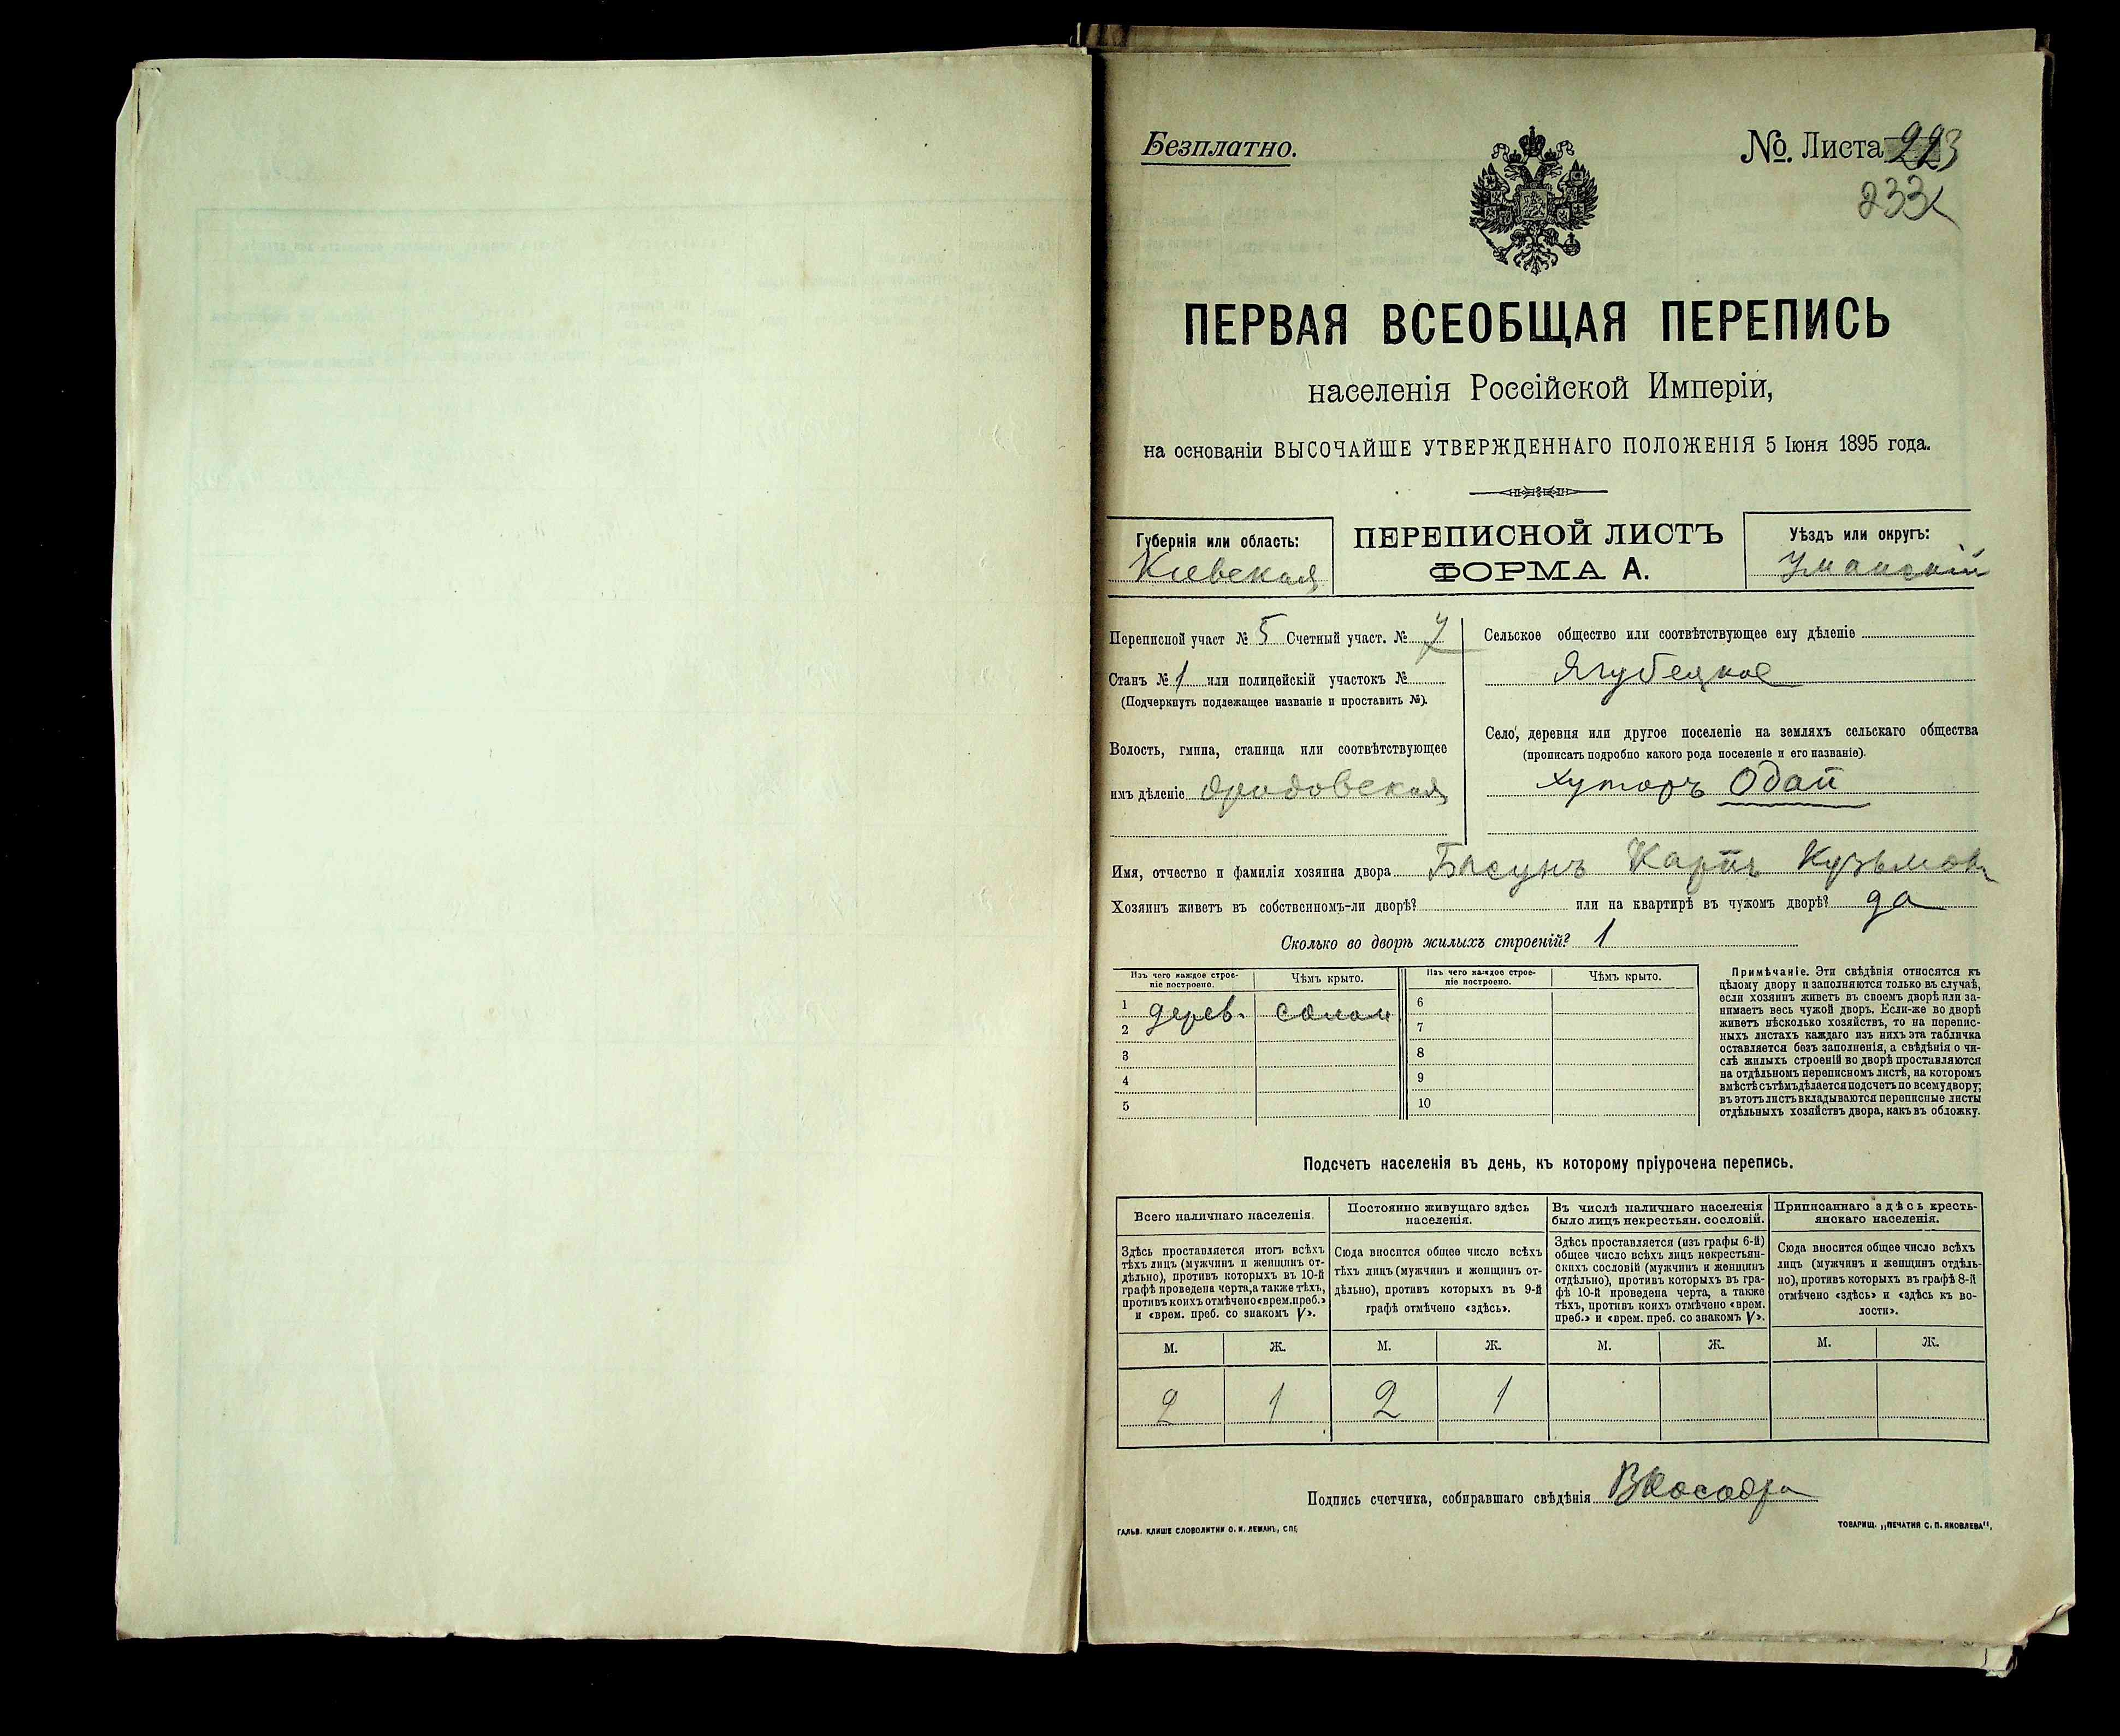 Безплатно.
№. Листа 223
233
ПЕРВАЯ ВСЕОБЩАЯ ПЕРЕПИСЬ
населенія Россійской Имперіи,
на основаніи ВЫСОЧАЙШЕ УТВЕРЖДЕННАГО ПОЛОЖЕНІЯ 5 Іюня 1895 года.
Губернія или область:
Киевская
ПЕРЕПИСНОЙ ЛИСТЪ
ФОРМА А.
Уѣздъ или округъ:
Уманскій
Переписной участ № 5 Счетный участ. № 7
Станъ № 1 или полицейскій участокъ №
(Подчеркнуть подлежащее названіе и проставить №).
Волость, гмина, станица или соотвѣтствующее
имъ дѣленіе
Сельское общество или соотвѣтствующее ему дѣленіе
Ягубецкое
Село, деревня или другое поселеніе на земляхъ сельскаго общества
(прописать подробно какого рода поселеніе и его названіе).
хуторъ Одай
Имя, отчество и фамилія хозяина двора Басунъ Карпъ Кузьмов
Хозяинъ живетъ въ собственномъ-ли дворѣ? или на квартирѣ въ чужомъ дворѣ? да
Сколько во дворѣ жилыхъ строеній? 1
Изъ чего каждое строе-
ніе построено.
Чѣмъ крыто.
Изъ чего каждое строе-
ніе построено.
Чѣмъ крыто.
1 дерев. солом
2
3
4
5
6
7
8
9
10
Примѣчаніе. Эти свѣдѣнія относятся къ
цѣлому двору и заполняются только въ случаѣ,
если хозяинъ живетъ въ своемъ дворѣ или за-
нимаетъ весь чужой дворъ. Если-же во дворѣ
живетъ нѣсколько хозяйствъ, то на перепис-
ныхъ листахъ каждаго изъ нихъ эта табличка
оставляется безъ заполненія, а свѣдѣнія о чи-
слѣ жилыхъ строеній во дворѣ проставляются
на отдѣльномъ переписномъ листѣ, на которомъ
вмѣстѣ съ тѣмъ дѣлается подсчетъ по всему двору;
въ этотъ листъ вкладываются переписные листы
отдѣльныхъ хозяйствъ двора, какъ въ обложку.
Подсчетъ населенія въ день, къ которому пріурочена перепись.
Всего наличнаго населенія.
Здѣсь проставляется итогъ всѣхъ
тѣхъ лицъ (мужчинъ и женщинъ от-
дѣльно), противъ которыхъ въ 10-й
графѣ проведена черта, а также тѣхъ,
противъ коихъ отмѣчено «врем. преб.»
и «врем. преб. со знакомъ V».
Постоянно живущаго здѣсь
населенія.
Сюда вносится общее число всѣхъ
тѣхъ лицъ (мужчинъ и женщинъ от-
дѣльно), противъ которыхъ въ 9-й
графѣ отмѣчено «здѣсь».
Въ числѣ наличнаго населенія
было лицъ некрестьян. сословій.
Здѣсь проставляется (изъ графы 6-й)
общее число всѣхъ лицъ некрестьян-
скихъ сословій (мужчинъ и женщинъ
отдѣльно), противъ которыхъ въ гра-
фѣ 10-й проведена черта, а также
тѣхъ, противъ коихъ отмѣчено «врем.
преб.» и «врем. преб. со знакомъ V».
Приписаннаго здѣсь кресть-
янскаго населенія.
Сюда вносится общее число всѣхъ
лицъ (мужчинъ и женщинъ отдѣль-
но), противъ которыхъ въ графѣ 8-й
отмѣчено «здѣсь» и «здѣсь къ во-
лости».
М. Ж. М. Ж. М. Ж. М. Ж.
2 1 2 1
Подпись счетчика, собиравшаго свѣдѣнія
ГАЛЬВ. КЛИШЕ СЛОВОЛИТНИ О. И. ЛЕМАНЪ, СПБ
ТОВАРИЩ. „ПЕЧАТНЯ С. П. ЯКОВЛЕВА“.